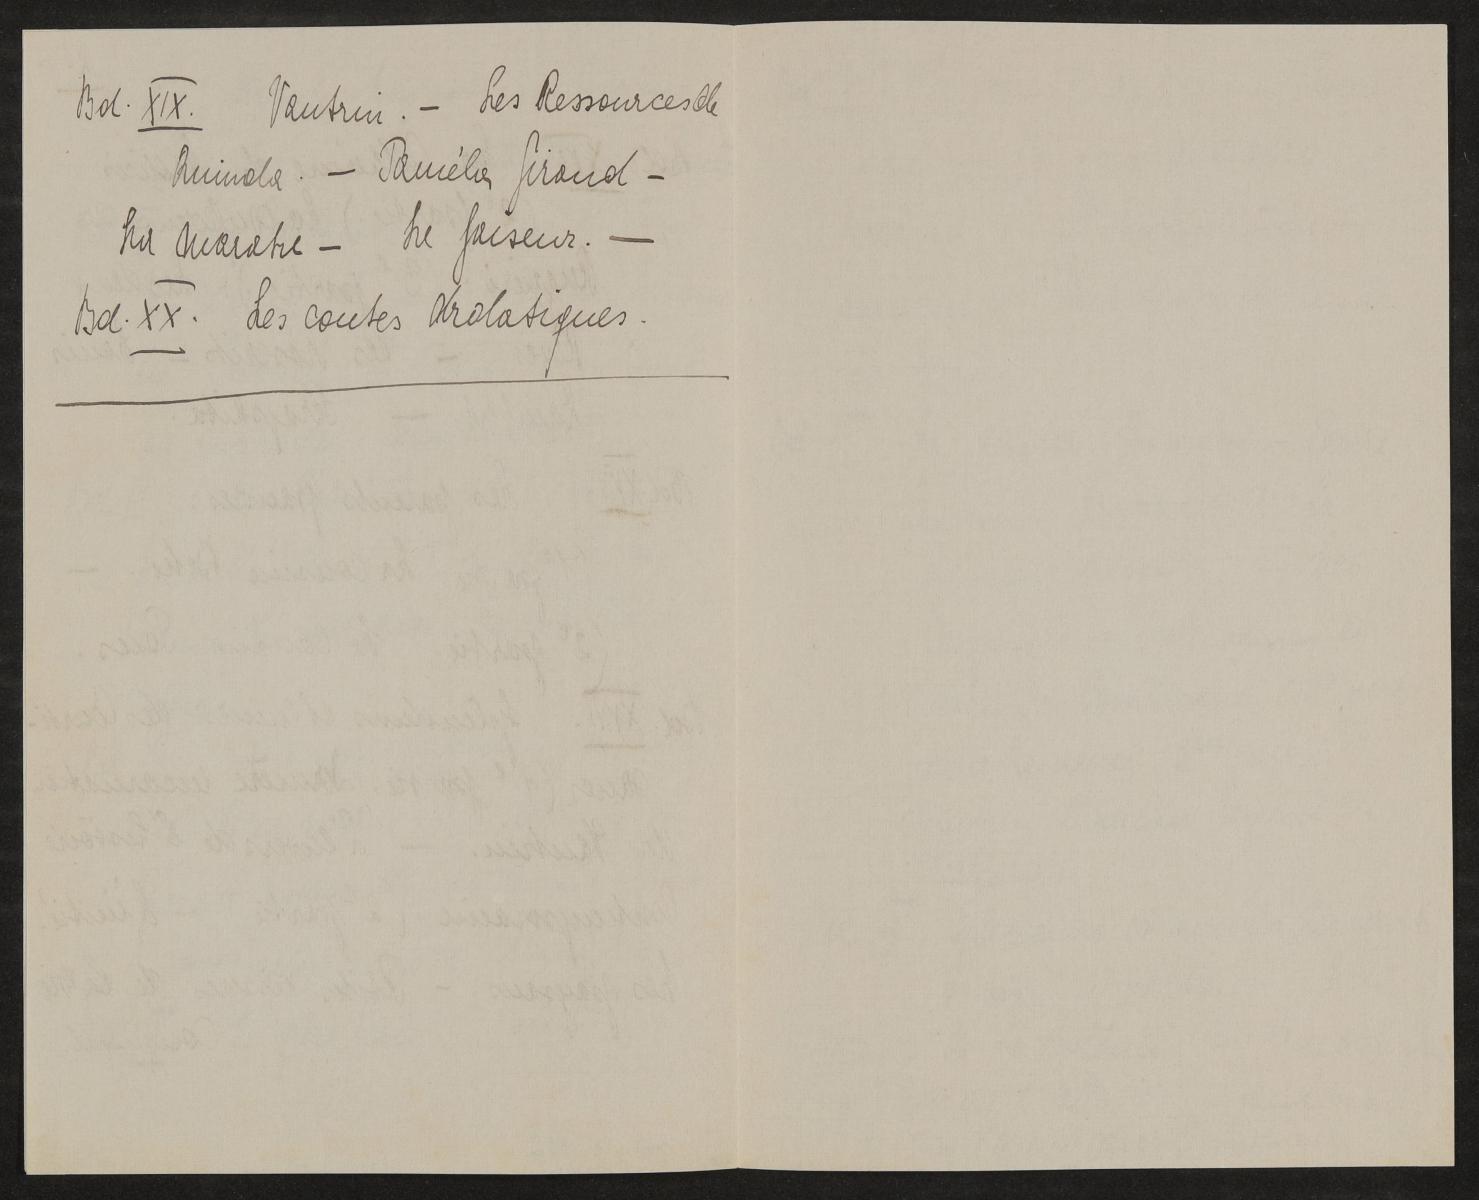 Bd. XIX. Vautrin. — Les Ressources de
Quinola. — Paméla Giraud —
La Maratre — Le faiseur. —
Bd. XX. Les contes drolatiques.